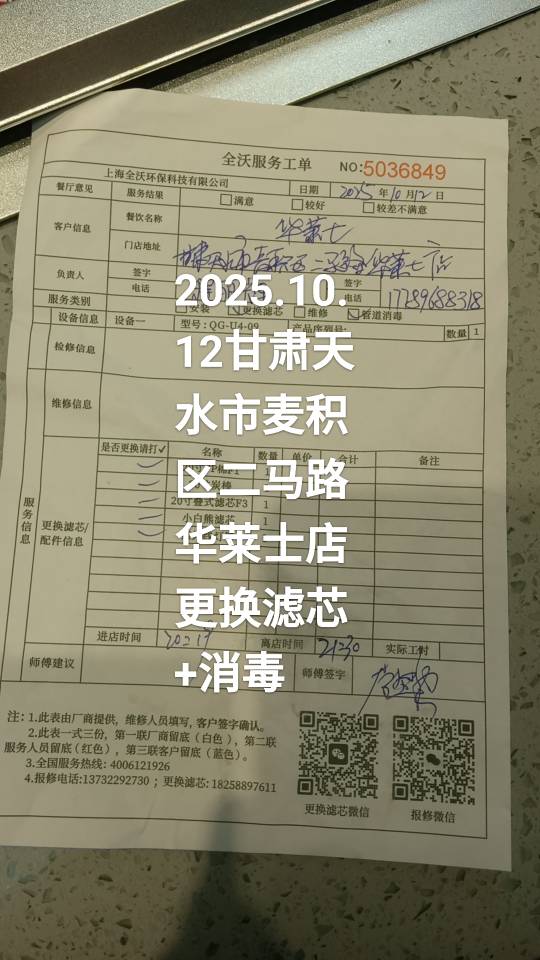 全沃服务工单 NO:5036849
上海全沃环保科技有限公司 日期 2025年10月12日
餐厅意见 服务结果 满意 较好 较差不满意
客户信息 餐饮名称 华莱士
门店地址 麦积区二马路华莱士店
负责人 签字 签字
电话 电话 17789688318
服务类别 安装 更换滤芯 维修 管道消毒
设备信息 设备一 型号:QG-U4-09 产品序列号: 数量 1
检修信息
维修信息
是否更换请打✓ 名称 数量 单价 合计 备注
20寸叠式滤芯F3 1
小白熊滤芯 1
服务信息
更换滤芯/配件信息
进店时间 离店时间 21:30 实际工时
师傅建议 师傅签字
注:1.此表由厂商提供,维修人员填写,客户签字确认。
2.此表一式三份,第一联厂商留底(白色),第二联
服务人员留底(红色),第三联客户留底(蓝色)。
3.全国服务热线:4006121926
4.报修电话:13732292730;更换滤芯:18258897611
更换滤芯微信 报修微信
2025.10.
12甘肃天
水市麦积
区二马路
华莱士店
更换滤芯
+消毒